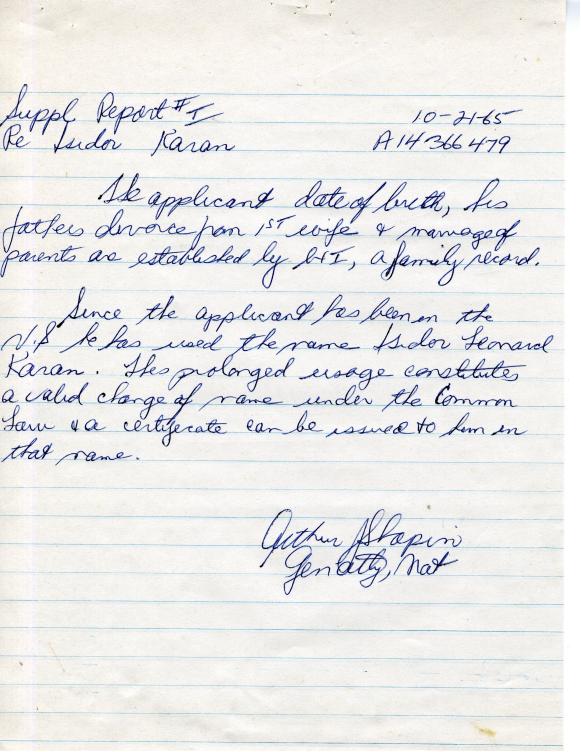 Suppl Report #I
10-21-65
Re Isidor Karan
A14 366 479
The applicant date of birth, his
fathers divorce from 1ST wife & marriage of
parents are established by Ex I, a family record.
Since the applicant has been in the
U.S he has used the name Isidor Leonard
Karan. This prolonged usage constitutes
a valid change of name under the Common
Law & a certificate can be issued to him in
that name.
Arthur J Shapiro
Gen atty, Nat